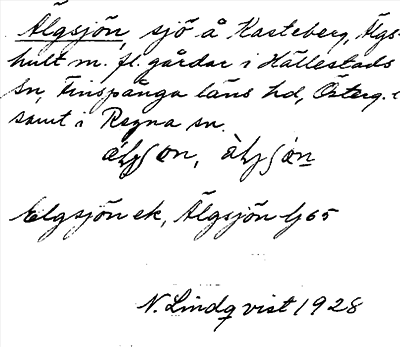 Älgsjön, sjö å Kasteberg, Älgs-
hult m. fl. gårdar i Hällestads
sn, Finspånga läns hd, Österg.
samt i Regna sn.
Elgsjön ek, Älgsjön Gj 65
N. Lindqvist 1928